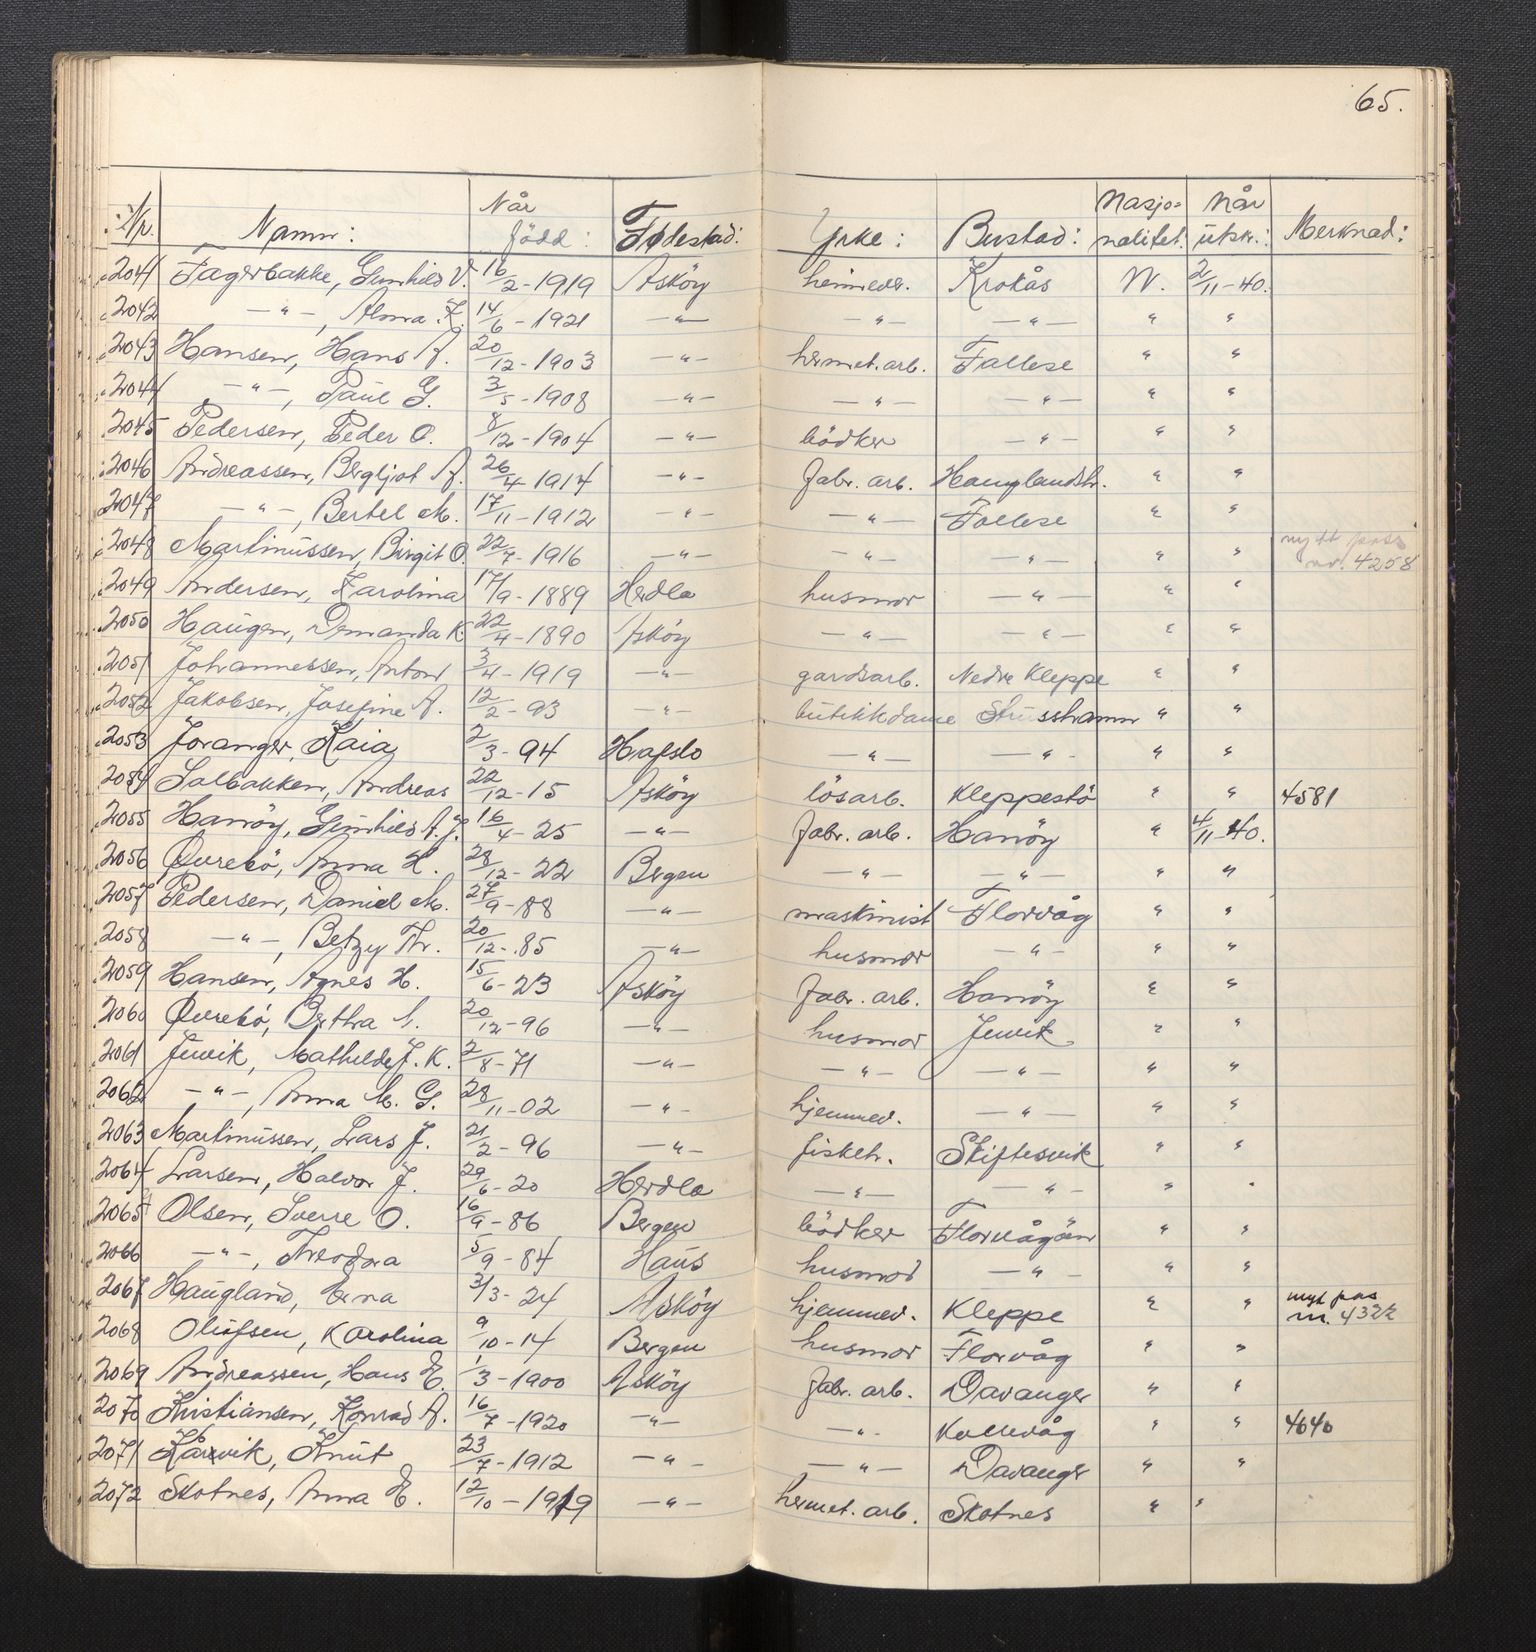 65.
Nr. Namn: Når född: Fødestad: Yrke: Bustad: Nasjonalitet. Når utskr.: Merknad:
2041 Fagerbakke, Gunhild V. 16/2-1919 Asköy heimever. Krokås N. 2/11-40.
2042 —"—, Alma K. 14/6-1921 —"— —"— —"— " "
2043 Hansen, Hans A. 20/12-1903 —"— hermet.arb. Follese " "
2044 —"—, Paul G. 3/5-1908 —"— —"— —"— " "
2045 Pedersen, Peder O. 8/12-1904 —"— bödker —"— " "
2046 Andreassen, Bergljot A. 26/4-1914 —"— fabr. arb. Hauglandsh. " "
2047 —"—, Bertel M. 17/11-1912 —"— —"— Follese " "
2048 Martinussen, Birgit O. 22/7-1916 —"— —"— —"— " " nytt pass nr. 4258
2049 Andersen, Karolina 17/9-1889 Herdla husmor —"— " "
2050 Haugen, Demanda K. 22/4-1890 Asköy —"— —"— " "
2051 Johannessen, Anton 3/4-1919 —"— gardsarb. Nedre Kleppe " "
2052 Jakobsen, Josefine A. 12/2-93 —"— butikkdame Strusshamn " "
2053 Joranger, Kaia 2/3-94 Hafslo —"— —"— " "
2054 Solbakken, Andreas 22/12-15 Asköy lösarb. Kleppestö " " 4581
2055 Hanöy, Gunhild A.J. 16/4-25 —"— fabr. arb. Hanöy " 4/11-40.
2056 Øvrebö, Anna H. 28/12-22 Bergen —"— —"— " "
2057 Pedersen, Daniel M. 27/9-88 —"— maskinist Florvåg " "
2058 —"—, Betzy Th. 20/12-85 —"— husmor —"— " "
2059 Hansen, Agnes H. 15/6-23 Asköy fabr. arb. Hanöy " "
2060 Øvrebö, Bertha S. 20/12-96 —"— husmor Juvik " "
2061 Juvik, Mathilde J. K. 2/8-71 —"— —"— —"— " "
2062 —"—, Anna M. G. 28/11-02 —"— hjemmev. —"— " "
2063 Martinussen, Lars J. 21/2-96 —"— fisker. Skiftesvik " "
2064 Larsen, Halvor J. 29/6-20 Herdla —"— —"— " "
2065 Olsen, Sverre O. 16/9-86 Bergen bödker Florvågöen " "
2066 —"—, Theodora 5/9-84 Haus husmor —"— " "
2067 Haugland, Erna 3/3-24 Asköy hjemmev. Kleppe " " nytt pass nr. 4322
2068 Olufsen, Karolina 9/10-14 Bergen husmor Florvåg " "
2069 Andreassen, Hans E. 1/3-1900 Asköy fabr. arb. Davanger " "
2070 Kristiansen, Konrad A. 16/7-1920 —"— —"— Kollevåg " " 4640
2071 Kårvik, Knut 23/7-1912 —"— —"— Davanger " "
2072 Skotnes, Anna E. 12/10-1919 —"— hermet. arb. Skotnes " "